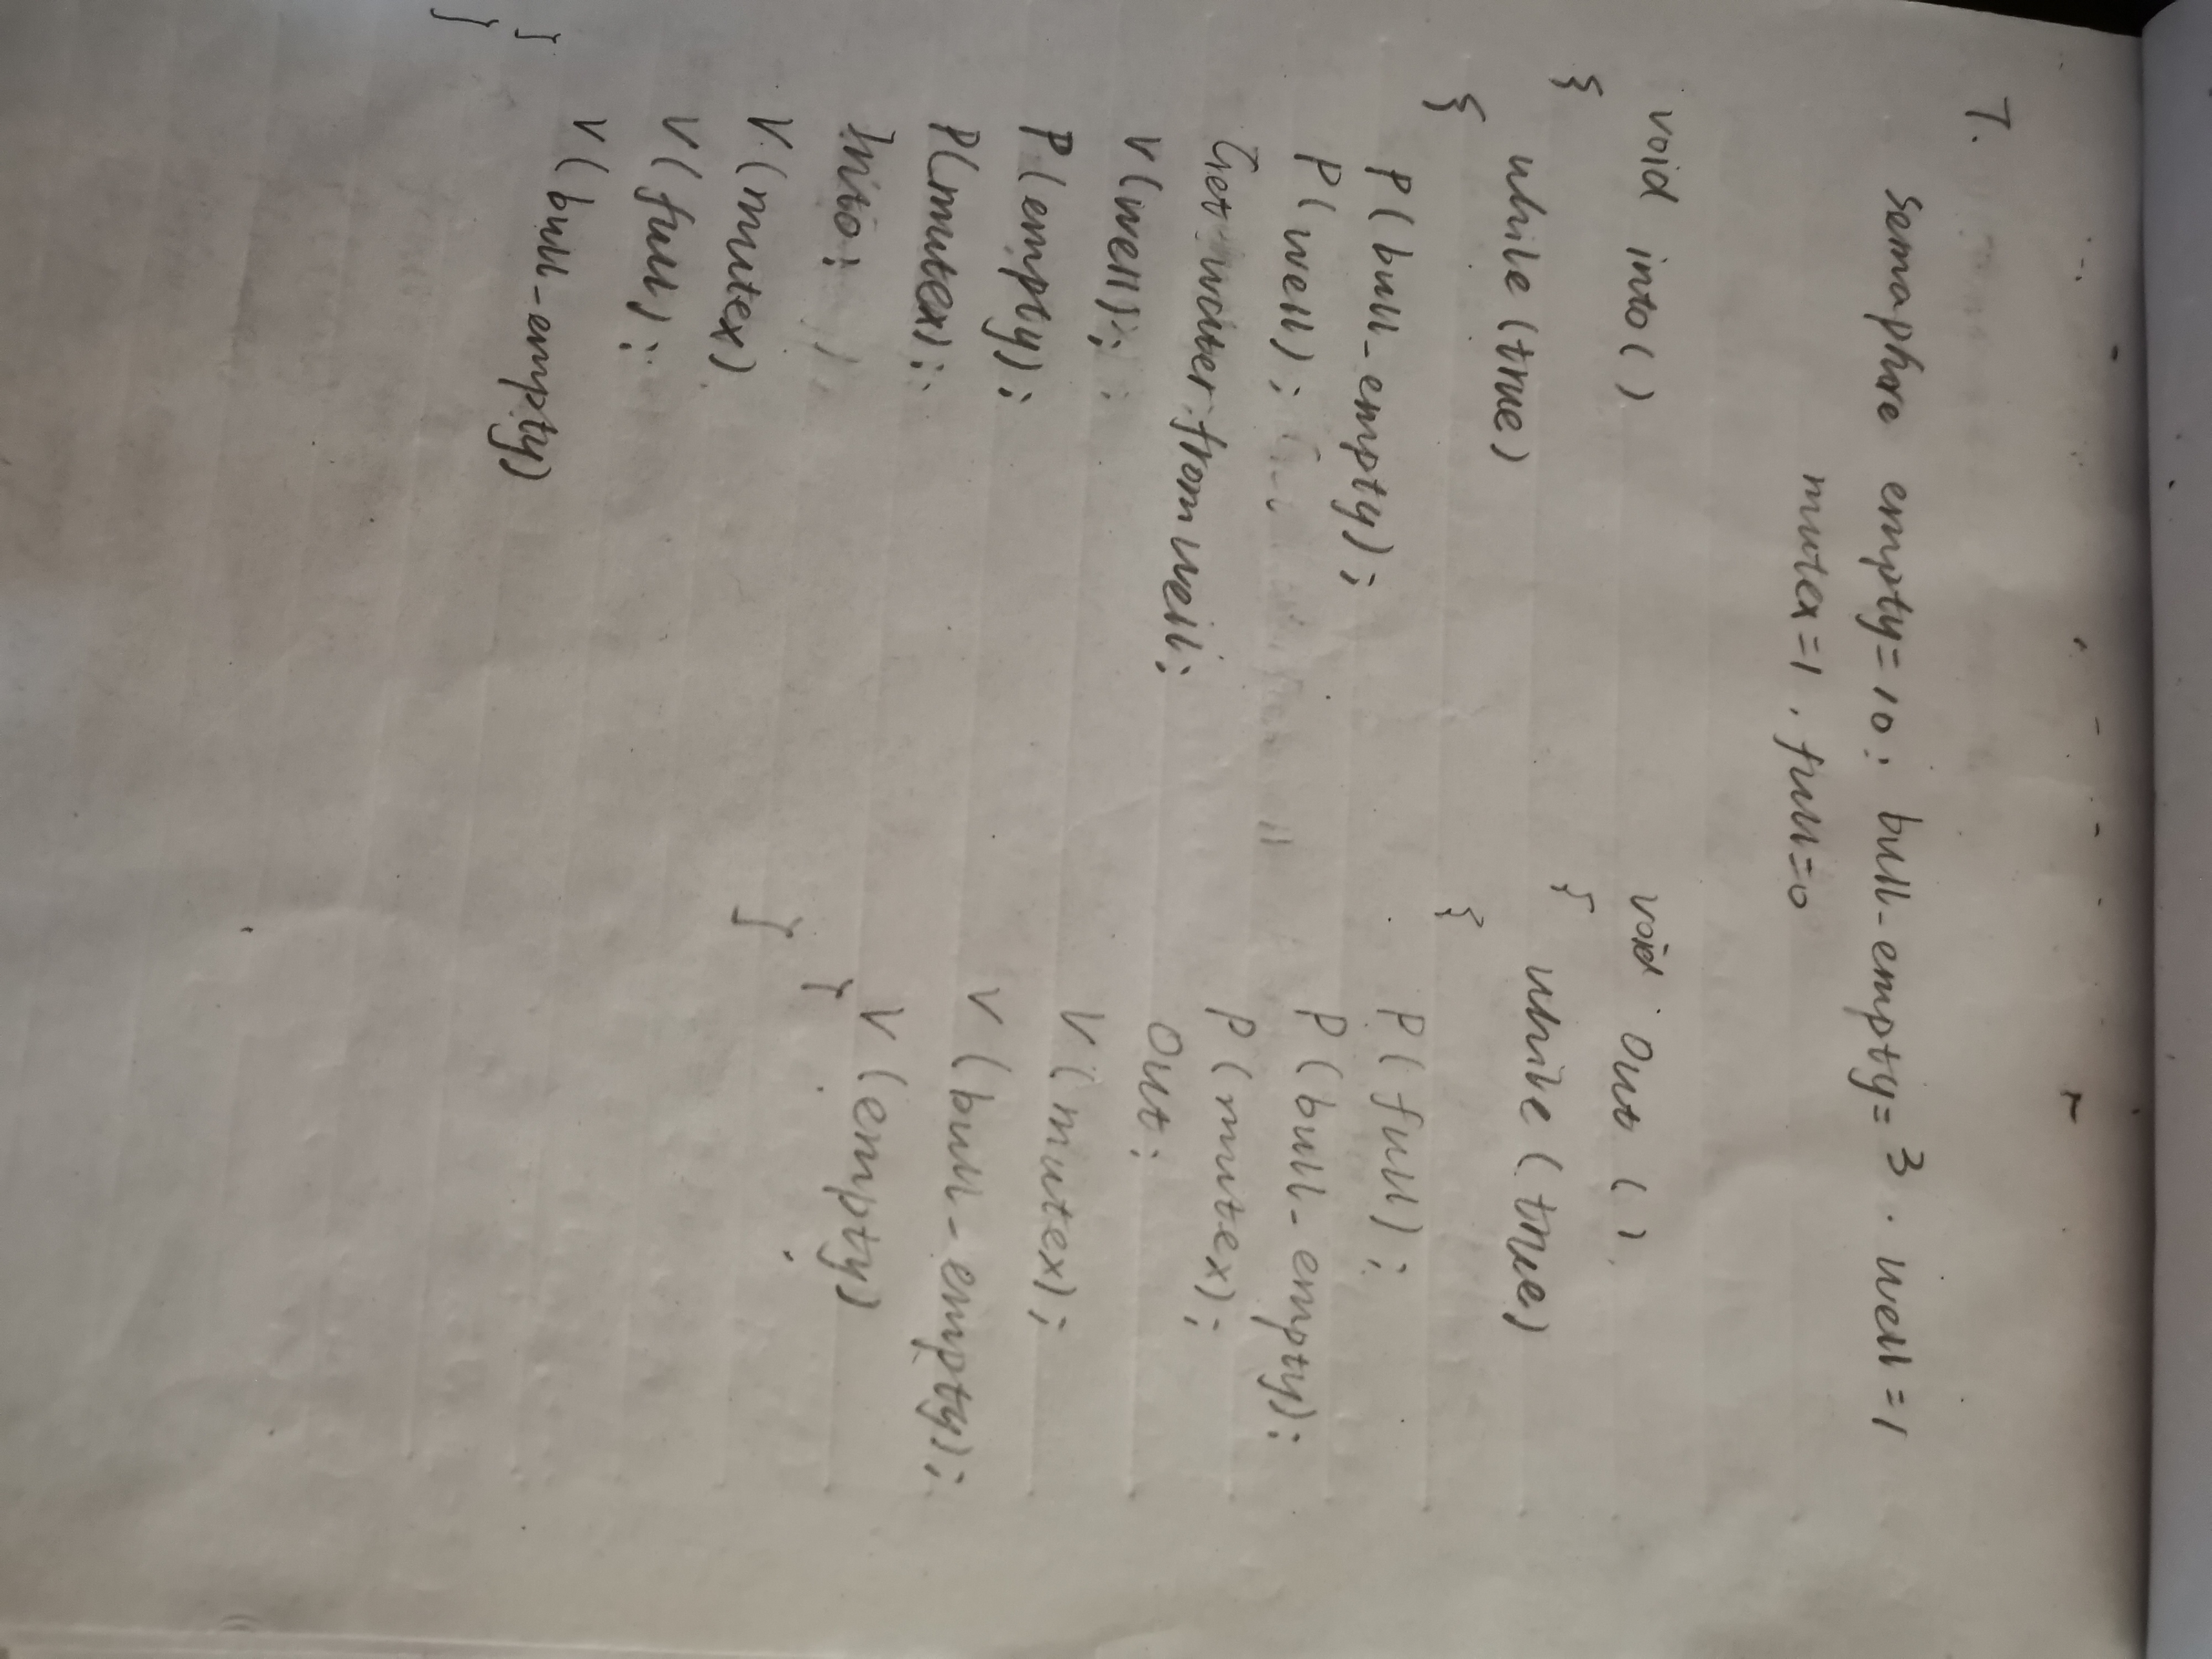 7.
Semaphore empty=10; bull-empty=3. well=1
mutex=1, full=0
void into()
{
while(true)
{
P(bull-empty);
P(well);
Get water from well;
V(well);
P(empty);
P(mutex);
Into;
V(mutex)
V(full);
V(bull-empty)
}
}
void Out().
{
while(true)
{
P(full);
P(bull-empty);
P(mutex);
Out;
V(mutex);
V(bull-empty);
V(empty)
}
}